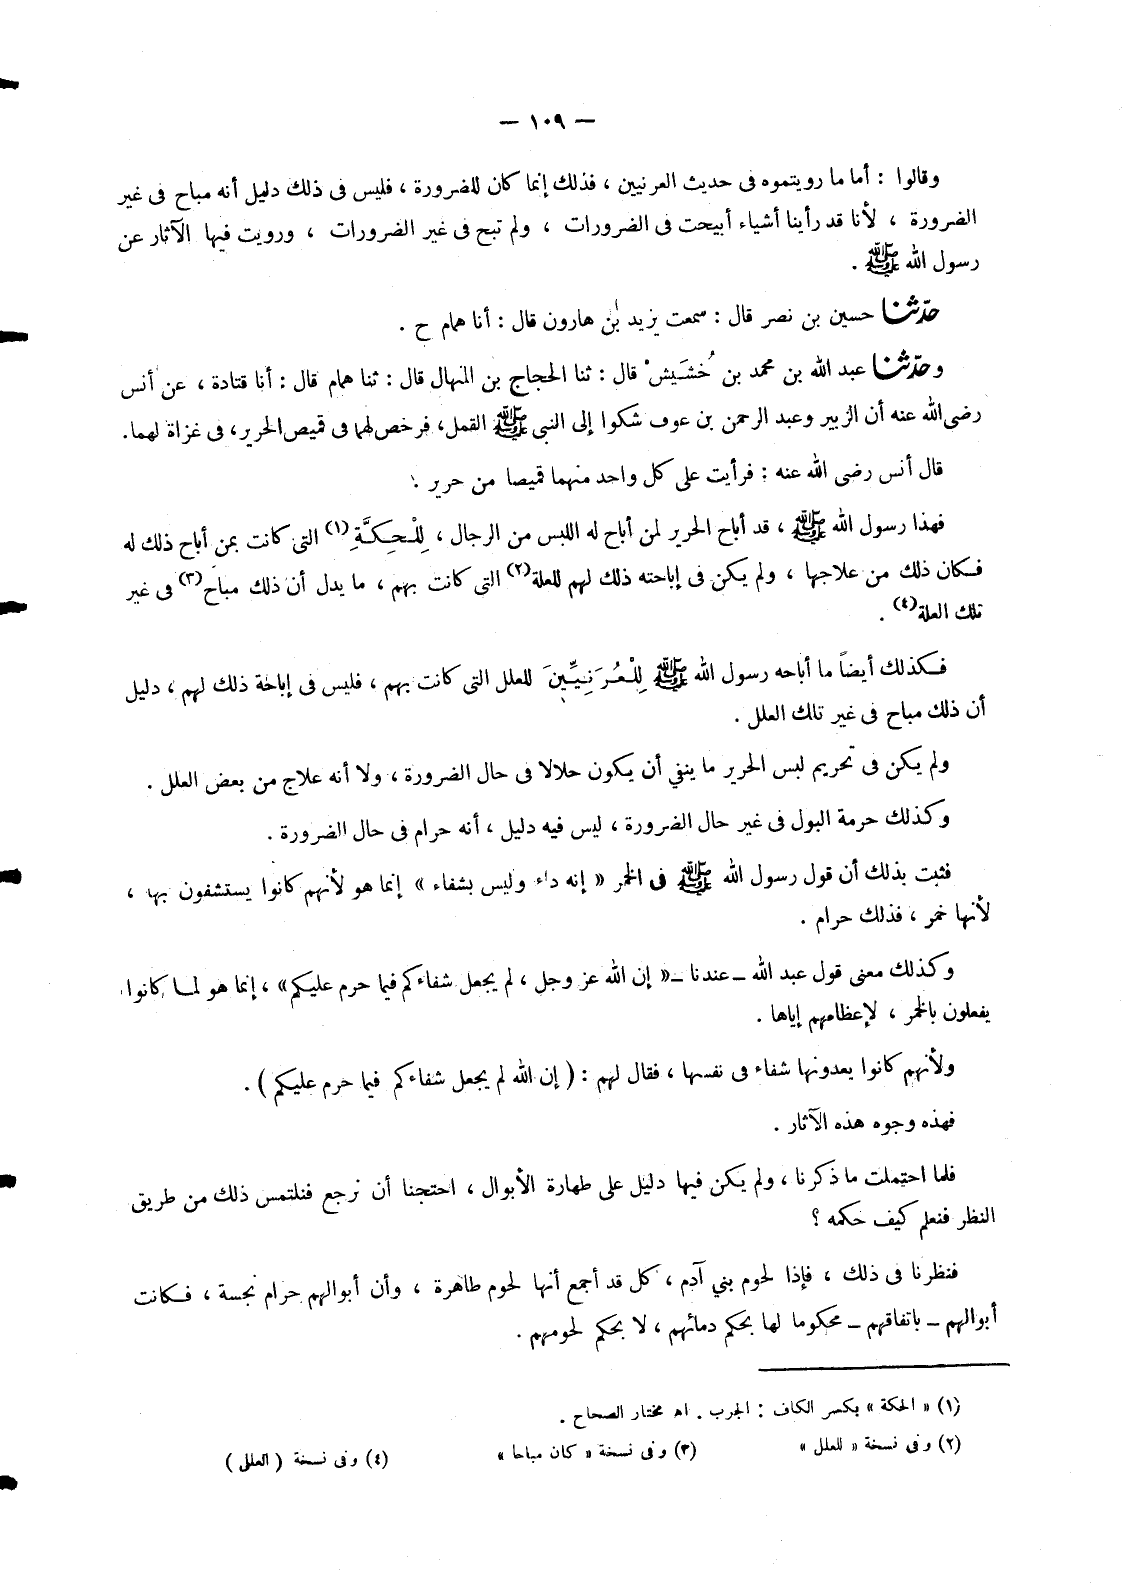 — ١٠٩ —
وقالوا : أما ما رويتموه فى حديث العرنيين ، فذلك إنما كان للضرورة ، فليس فى ذلك دليل أنه مباح فى غير
الضرورة ، لأنا قد رأينا أشياء أبيحت فى الضرورات ، ولم تبح فى غير الضرورات ، ورويت فيها الآثار عن
رسول الله ﷺ .
حدّثنا حسين بن نصر قال : سمعت يزيد بن هارون قال : أنا همام ح .
وحدّثنا عبد الله بن محمد بن خُشَيش قال : ثنا الحجاج بن المنهال قال : ثنا همام قال : أنا قتادة ، عن أنس
رضى الله عنه أن الزبير وعبد الرحمن بن عوف شكوا إلى النبى ﷺ القمل، فرخص لهما فى قميص الحرير، فى غزاة لهما.
قال أنس رضى الله عنه : فرأيت على كل واحد منهما قميصا من حرير .
فهذا رسول الله ﷺ ، قد أباح الحرير لمن أباح له اللبس من الرجال ، لِلْحِكَّةِ (١) التى كانت بمن أباح ذلك له
فكان ذلك من علاجها ، ولم يكن فى إباحته ذلك لهم للعلة (٢) التى كانت بهم ، ما يدل أن ذلك مباح (٣) فى غير
تلك العلة (٤) .
فكذلك أيضاً ما أباحه رسول الله ﷺ لِلْعُرَنِيِّينَ للعلل التى كانت بهم ، فليس فى إباحة ذلك لهم ، دليل
أن ذلك مباح فى غير تلك العلل .
ولم يكن فى تحريم لبس الحرير ما ينفي أن يكون حلالا فى حال الضرورة ، ولا أنه علاج من بعض العلل .
وكذلك حرمة البول فى غير حال الضرورة ، ليس فيه دليل ، أنه حرام فى حال الضرورة .
فثبت بذلك أن قول رسول الله ﷺ فى الخمر « إنه داء وليس بشفاء » إنما هو لأنهم كانوا يستشفون بها ،
لأنها خمر ، فذلك حرام .
وكذلك معنى قول عبد الله ـ عندنا ـ « إن الله عز وجل ، لم يجعل شفاءكم فيما حرم عليكم » ، إنما هو لما كانوا
يفعلون بالخمر ، لإعظامهم إياها .
ولأنهم كانوا يعدونها شفاء فى نفسها ، فقال لهم : ( إن الله لم يجعل شفاءكم فيما حرم عليكم ) .
فهذه وجوه هذه الآثار .
فلما احتملت ما ذكرنا ، ولم يكن فيها دليل على طهارة الأبوال ، احتجنا أن نرجع فنلتمس ذلك من طريق
النظر فنعلم كيف حكمه ؟
فنظرنا فى ذلك ، فإذا لحوم بني آدم ، كل قد أجمع أنها لحوم طاهرة ، وأن أبوالهم حرام نجسة ، فكانت
أبوالهم ـ باتفاقهم ـ محكوما لها بحكم دمائهم ، لا بحكم لحومهم .
(١) « الحكة » بكسر الكاف : الجرب . اه مختار الصحاح .
(٢) وفى نسخة « للعلل » (٣) وفى نسخة « كان مباحا » (٤) وفى نسخة ( العلل )